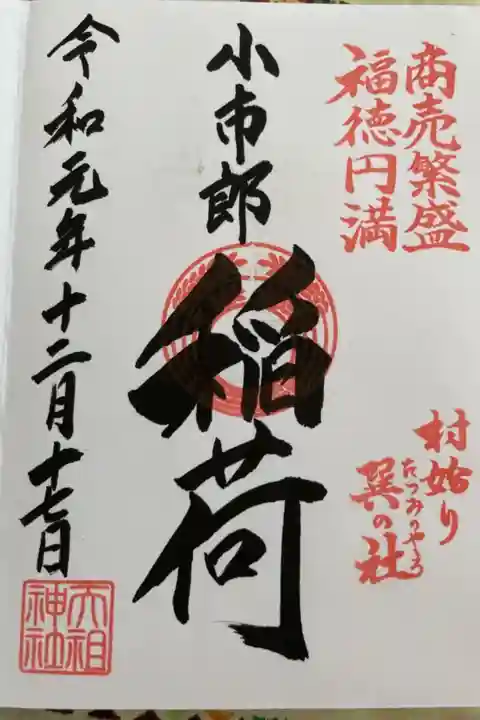 商売繁盛
福徳円満
村始り
巽の社
たつみのやしろ
小市郎
稲荷
令和元年十二月十七日
大祖
神社